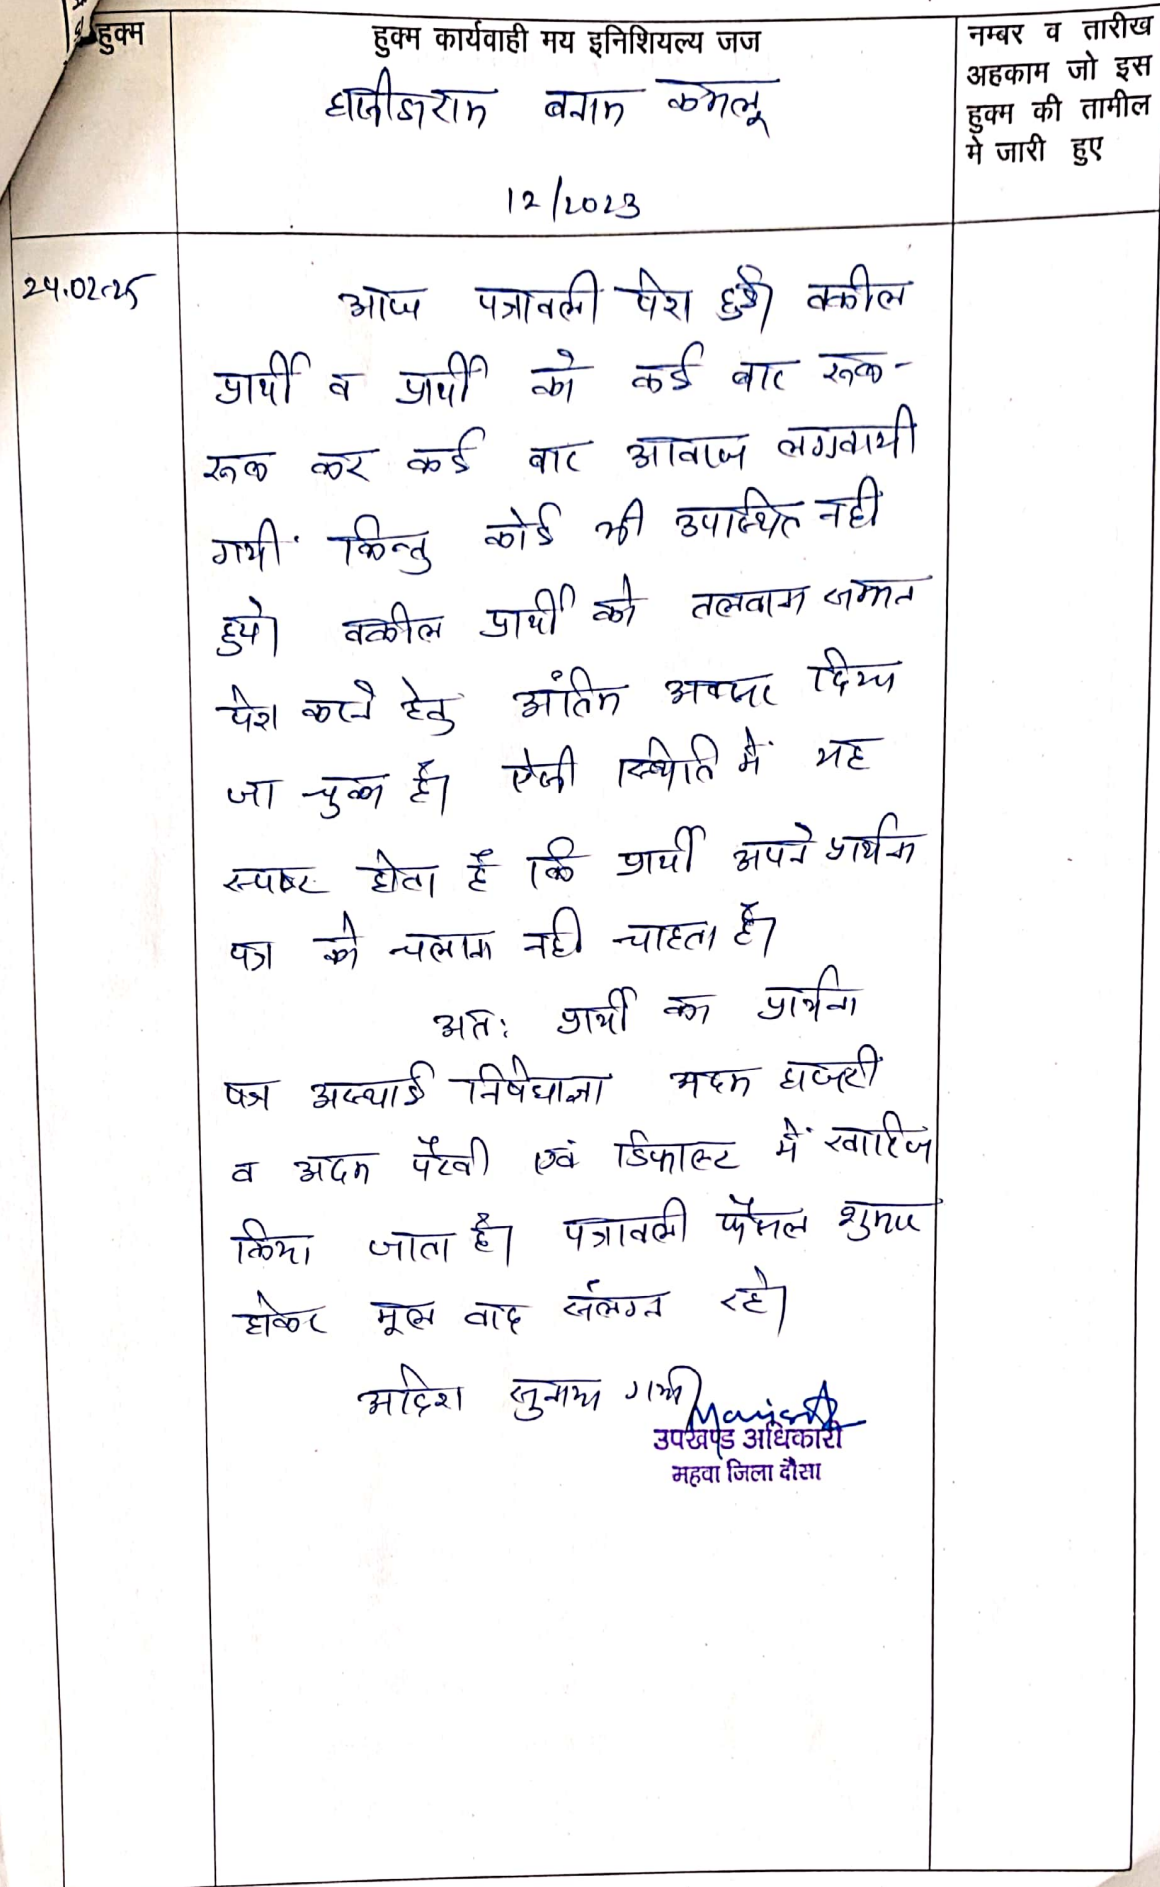 हुक्म
हुक्म कार्यवाही मय इनिशियल्य जज
नम्बर व तारीख
अहकाम जो इस
हुक्म की तामील
मे जारी हुए
बनाम कमलू
12/2023
24.02.25
आज पत्रावली पेश हुई। वकील
प्रार्थी व प्रार्थी को कई बार रूक-
रूक कर कई बार आवाज लगवायी
गयी किन्तु कोई भी उपस्थित नही
हुये। वकील प्रार्थी को तलवाना सम्मन
पेश करने हेतु अंतिम अवसर दिया
जा चुका है। ऐसी स्थिति में यह
स्पष्ट होता है कि प्रार्थी अपने प्रार्थना
पत्र को चलाना नही चाहता है।
अतः प्रार्थी का प्रार्थना
पत्र अस्थाई निषेधाज्ञा अदम हाजरी
व अदम पैरवी एवं डिफाल्ट में खारिज
किया जाता है। पत्रावली फैसल शुमार
होकर मूल वाद संलग्न रहे।
आदेश सुनाया गया।
उपखण्ड अधिकारी
महवा जिला दौसा